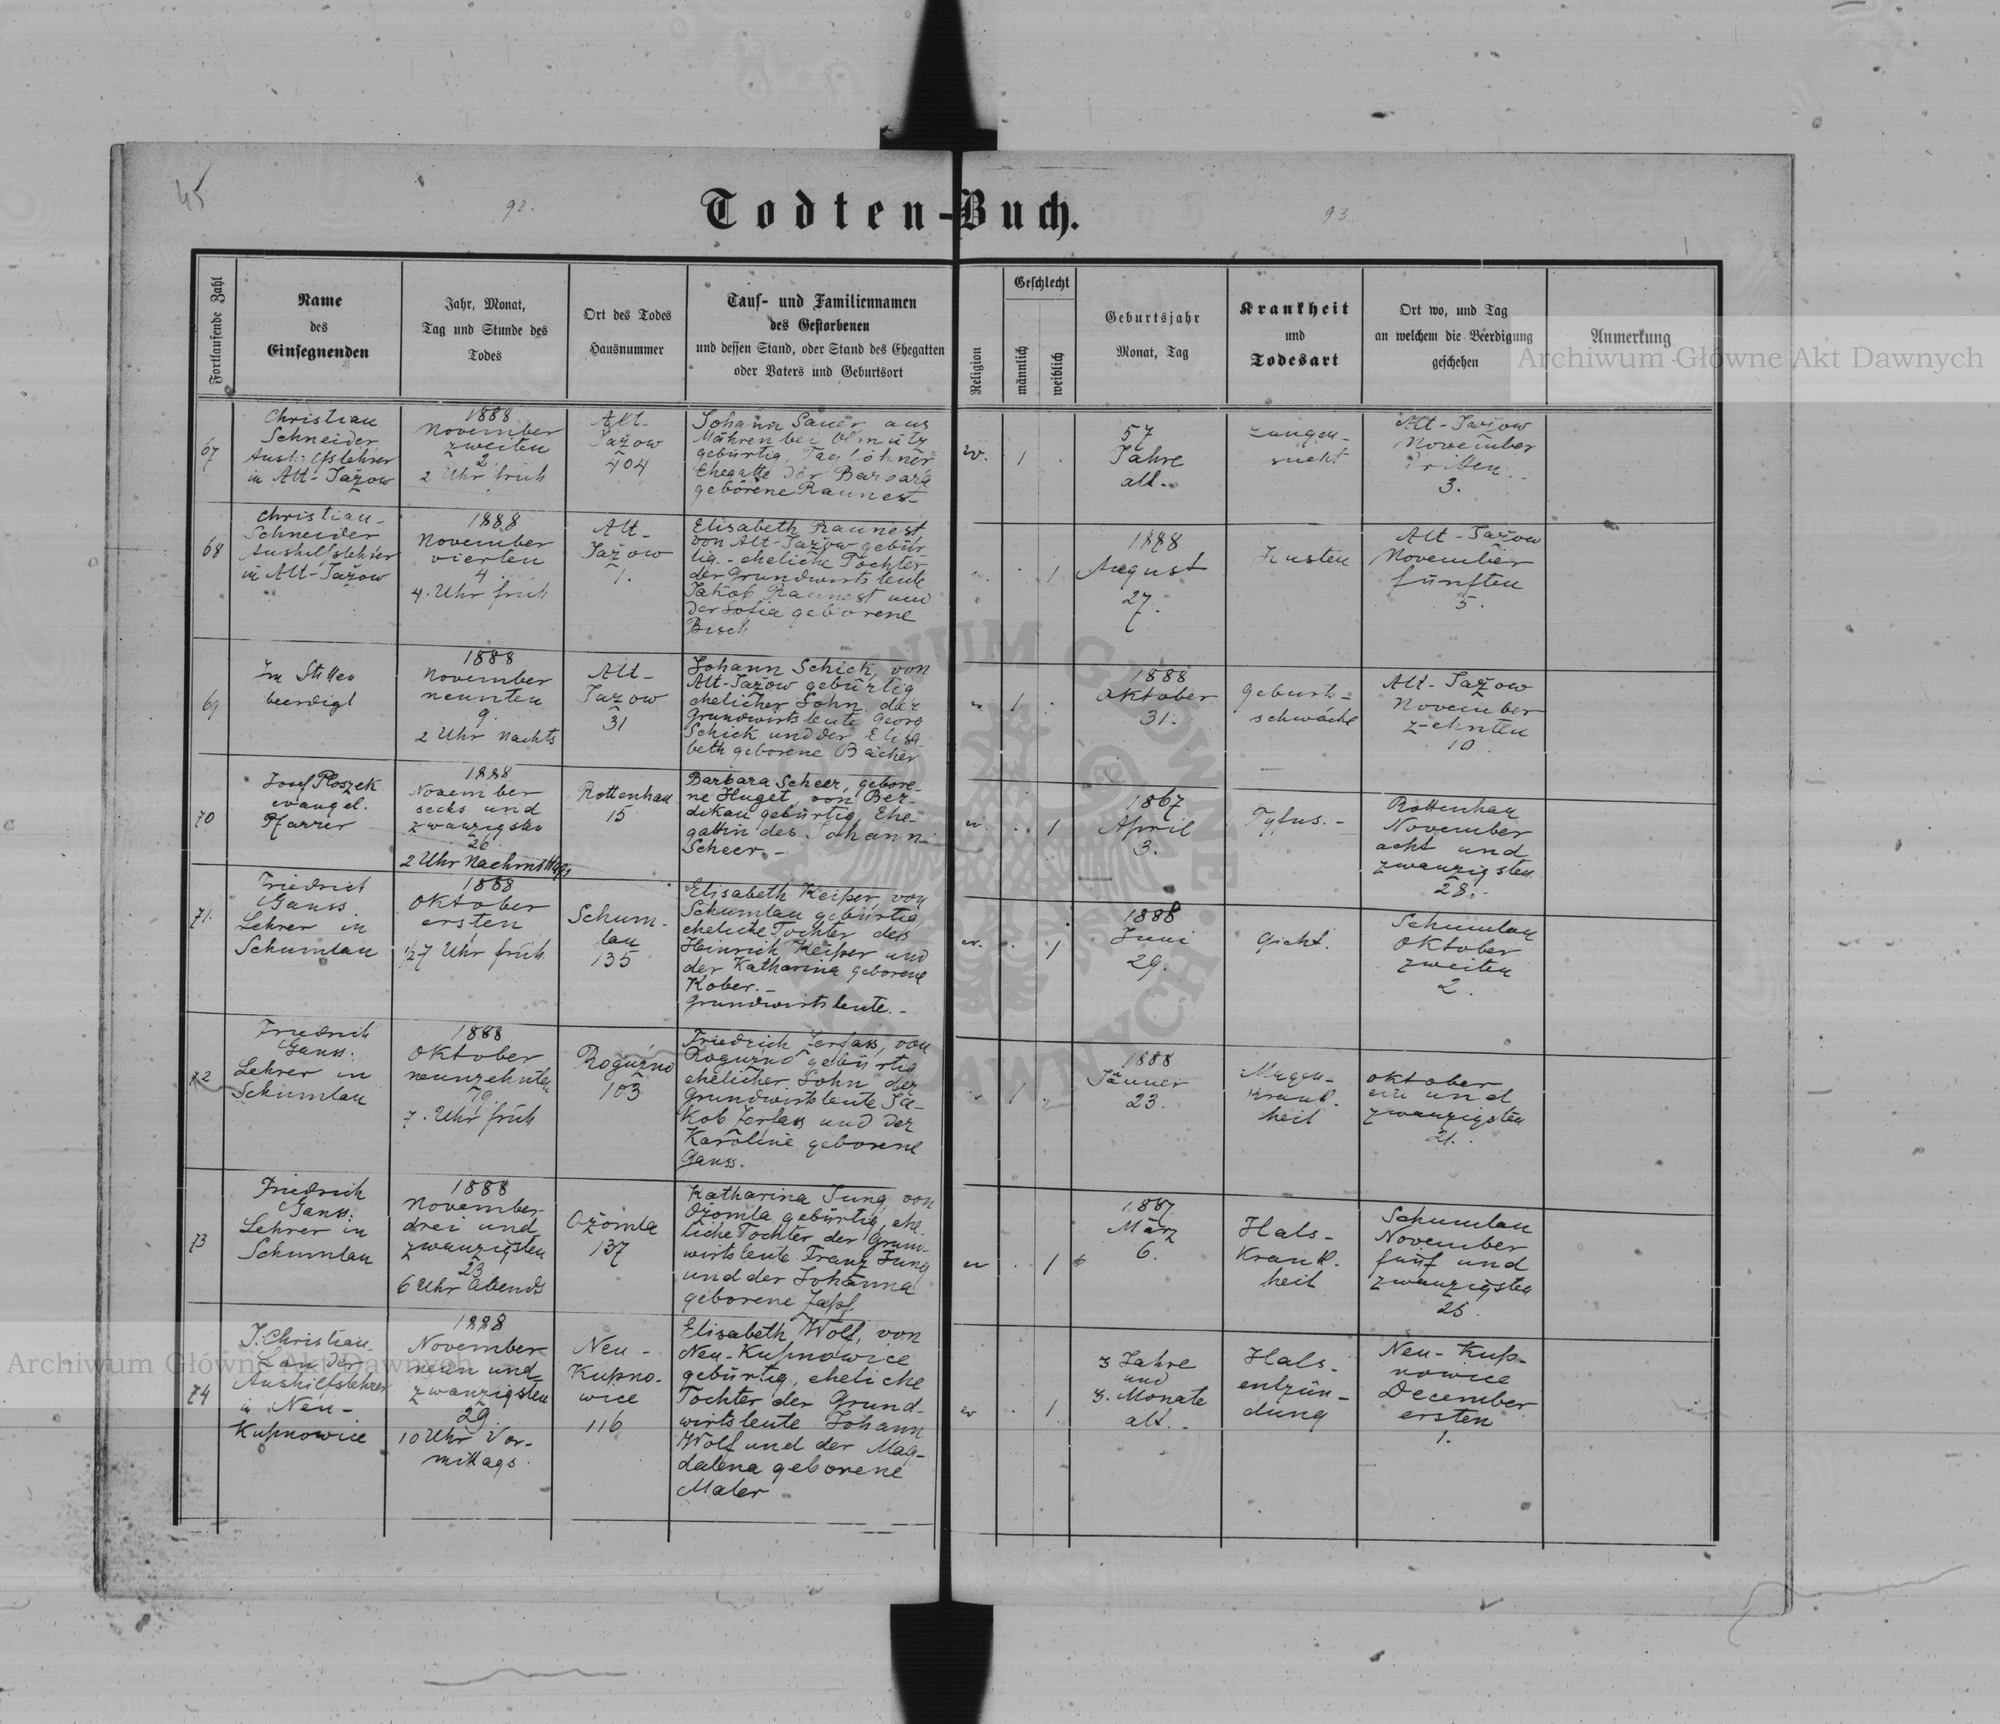 45
92.
Todten-Buch.
93.
Fortlaufende Zahl
Name
des
Einsegnenden
Jahr, Monat,
Tag und Stunde des
Todes
Ort des Todes
Hausnummer
Tauf- und Familiennamen
des Gestorbenen
und dessen Stand, oder Stand des Ehegatten
oder Vaters und Geburtsort
Religion
Geschlecht
männlich
weiblich
Geburtsjahr
Monat, Tag
Krankheit
und
Todesart
Ort wo, und Tag
an welchem die Beerdigung
geschehen
Anmerkung
Archiwum Główne Akt Dawnych
67
Christian
Schneider
Aushilfslehrer
in Alt-Jažow
1888
November
zweiten
2
2 Uhr früh
Alt-
Jažow
404
Johann Sauer, aus
Mähren bei Olmütz
gebürtig, Taglöhner
Ehegatte der Barbara
geborene Raunest
ev.
1
57
Jahre
alt.-
Lungen-
sucht
Alt-Jažow
November
dritten
3.
68
Christian-
Schneider
Aushilfslehrer
in Alt-Jažow
1888
November
vierten
4.
4. Uhr früh
Alt-
Jažow
7.
Elisabeth Raunest
von Alt-Jažow gebür-
tig.- eheliche Tochter
der Grundwirtsleute
Jakob Raunest und
der Sofia geborene
Bisch
1
1888
August
27.
Husten
Alt-Jažow
November
fünften
5.
69
Im Stillen
beerdigt
1888
November
neunten
9.
2 Uhr Nachts
Alt-
Jažow
31
Johann Schick, von
Alt-Jažow gebürtig
ehelicher Sohn der
Grundwirtsleute Georg
Schick und der Elisa
beth geborene Bächer
1
1888
Oktober
31.
Geburts-
schwäche
Alt-Jažow
November
zehnten
10.
70
Josef Ploszek
evangel.
Pfarrer
1888
November
sechs und
zwanzigsten
26.
2 Uhr Nachmittags
Rottenhan
15
Barbara Scheer, gebore-
ne Huget, von Ber-
dikau gebürtig Ehe-
gattin des Johann
Scheer.-
1
1867
April
3.
Tyfus.-
Rottenhan
November
acht und
zwanzigsten
28.-
71.
Friedrich
Ganss
Lehrer in
Schumlau
1888
Oktober
ersten
1/2 7 Uhr früh
Schum-
lau
135
Elisabeth Keiper, von
Schumlau gebürtig
eheliche Tochter des
Heinrich Keiper und
der Katharina geborene
Kober.-
Grundwirtsleute.-
ev.
1
1888
Juni
29.
Gicht.
Schumlau
Oktober
zweiten
2.
72
Friedrich
Ganss:
Lehrer in
Schumlau
1888
Oktober
neunzehnten
19.
7. Uhr früh
Rogužno
103
Friedrich Zerfass, von
Rogužno gebürtig
ehelicher Sohn der
Grundwirtsleute Ja-
kob Zerfass und der
Karoline geborene
Ganss.
1
1888
Jänner
23.
Magen-
krank-
heit
Oktober
ein und
zwanzigsten
21.
73
Friedrich
Ganss:
Lehrer in
Schumlau
1888
November
drei und
zwanzigsten
23
6 Uhr Abends
Ožomla
137
Katharina Jung, von
Ožomla gebürtig, ehe
liche Tochter der Grund-
wirtsleute Franz Jung
und der Johanna
geborene Zapf
ev
1
1887
März
6.
Hals-
krank-
heit
Schumlau
November
fünf und
zwanzigsten
25.
74
J. Christian
Lander
Aushilfslehrer
in Neu-
Kupnowice
1888
November
neun und
zwanzigsten
29
10 Uhr Vor-
mittags
Neu-
Kupno-
wice
116
Elisabeth Wolf, von
Neu-Kupnowice
gebürtig, eheliche
Tochter der Grund-
wirtsleute Johann
Wolf und der Mag-
dalena geborene
Maler
ev
1
3 Jahre
und
3. Monate
alt.
Hals-
entzün-
dung
Neu-Kup-
nowice
December
ersten
1.
Archiwum Główne Akt Dawnych